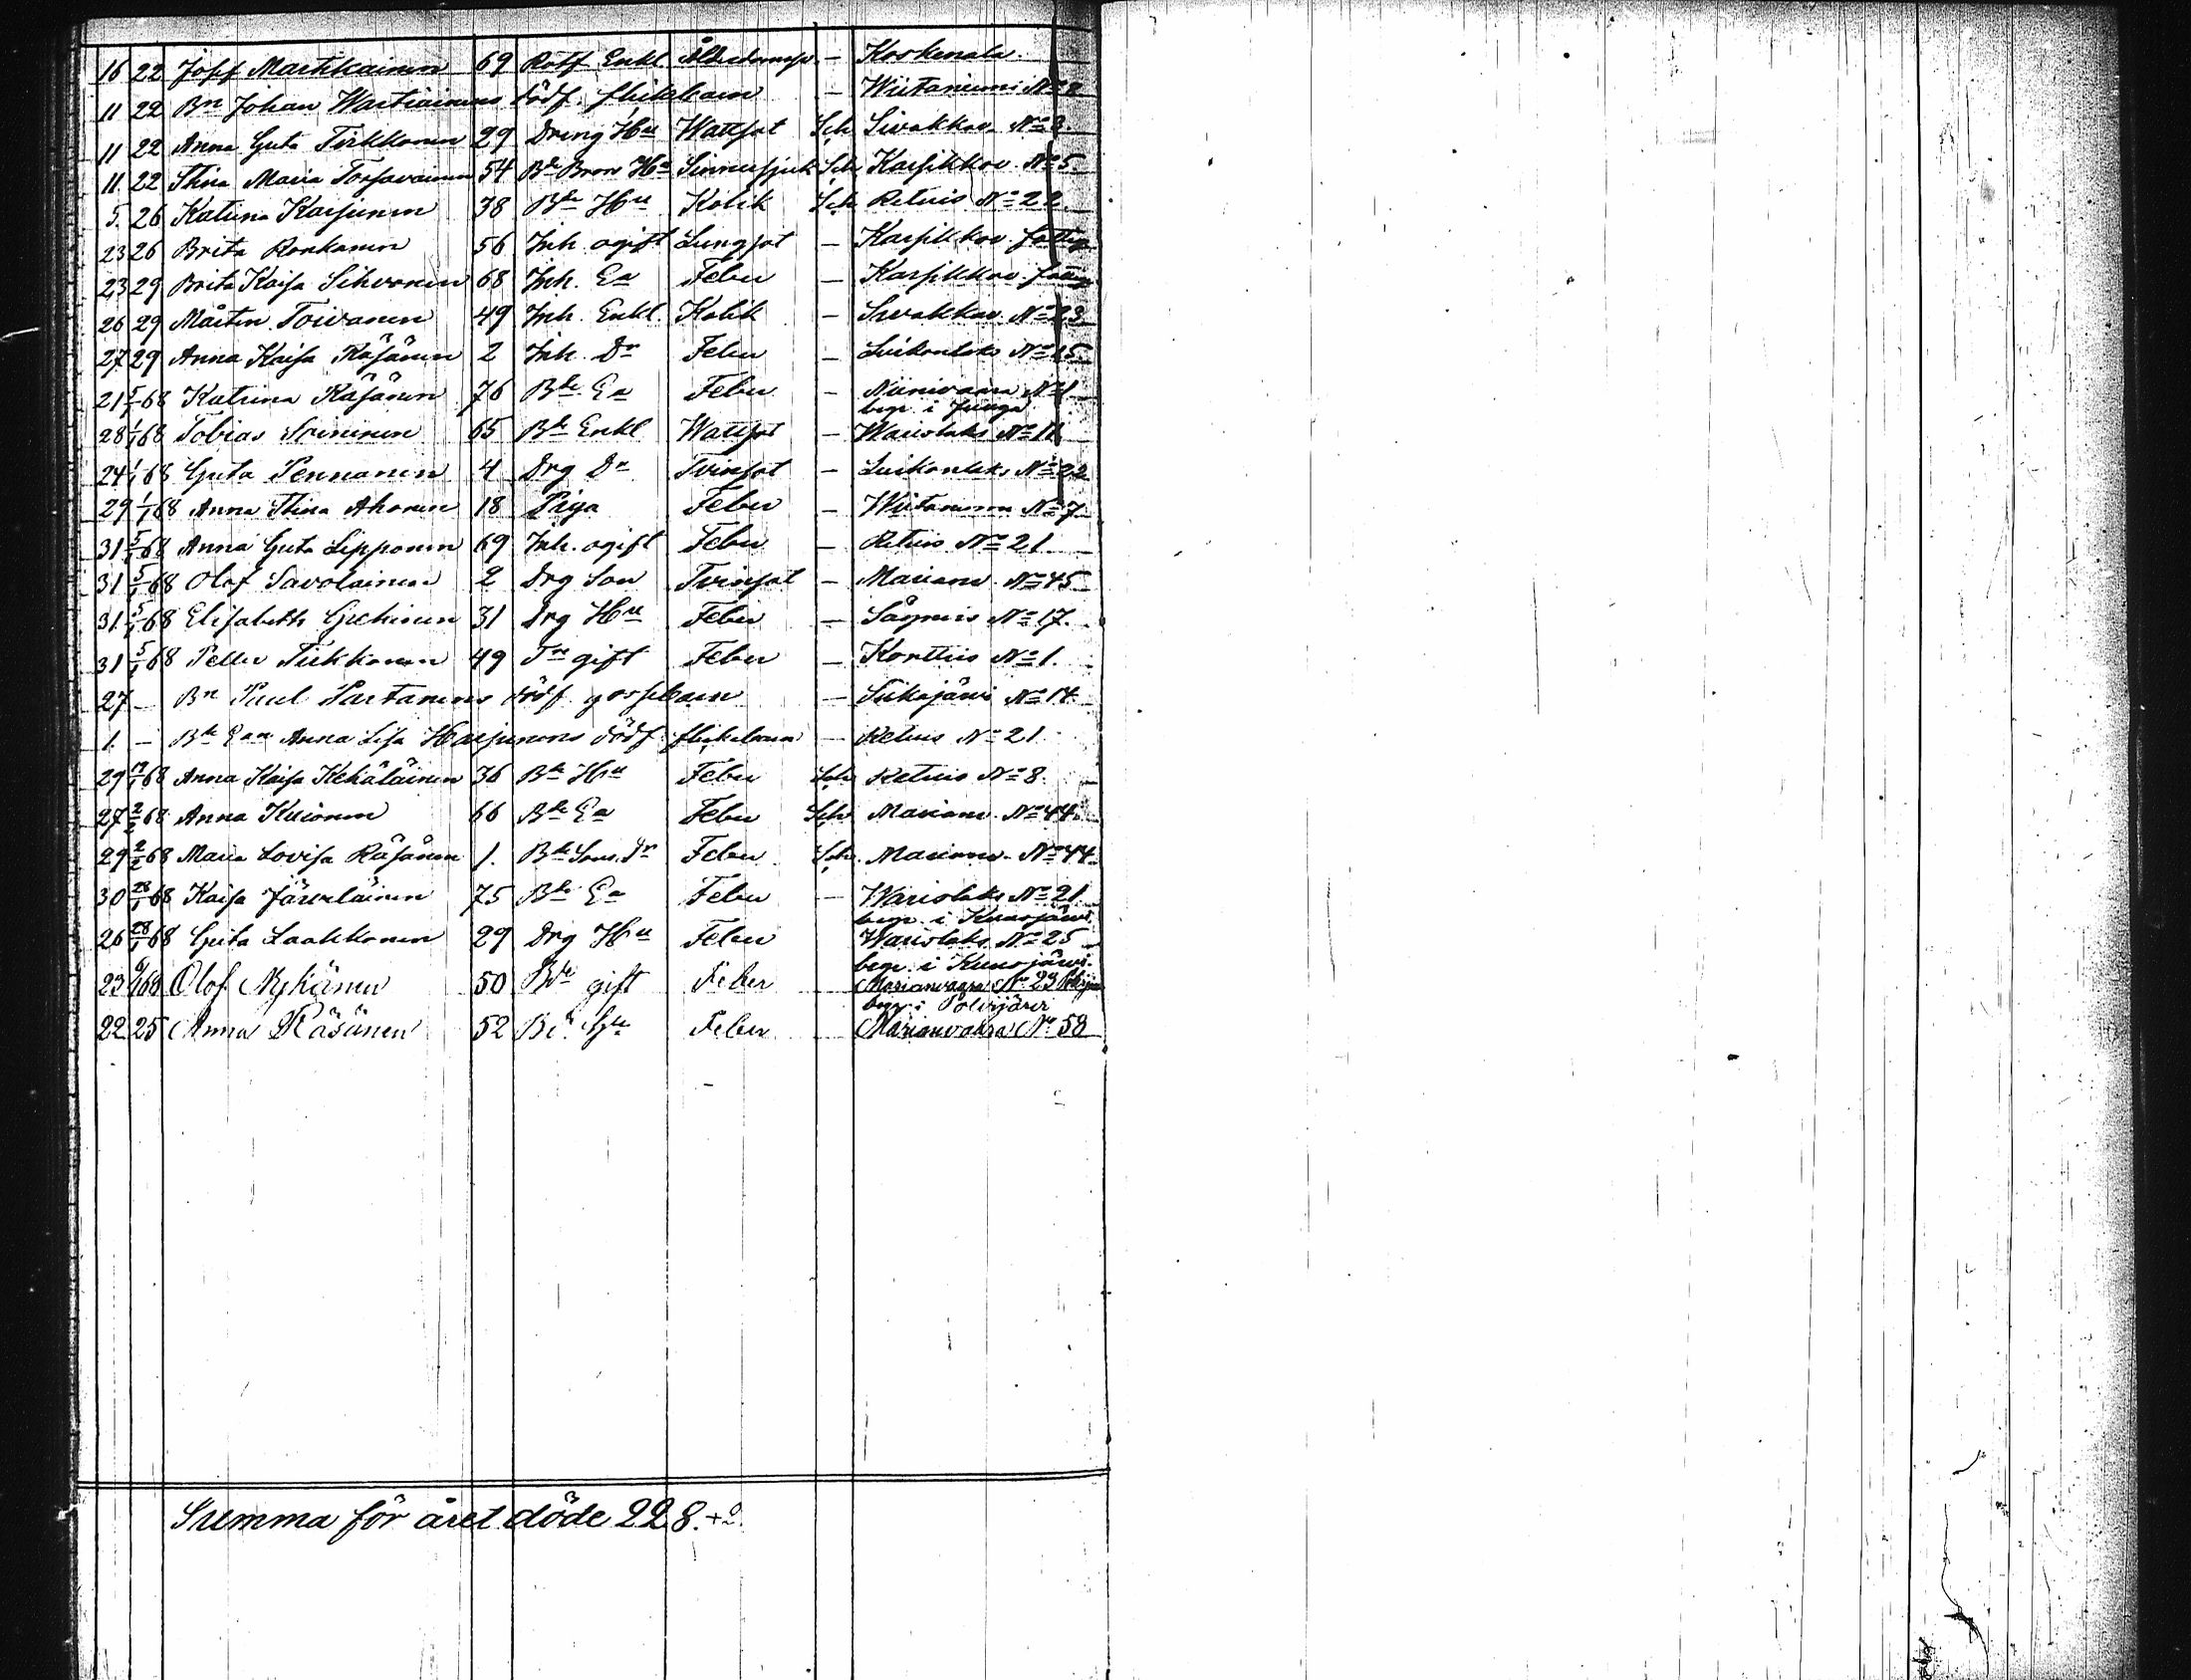 16 22 Josef Martikainen 69 Rotf. Enkl. Ålderdomsv. — Koskenala
11 22 Bn Johan Wartiainens dödf. flickebarn — Wiitaniemi No 8
11 22 Anna Greta Tirkkonen 29 Dreng Hu Wattsot Sch Sivakkav. No 3.
11 22 Stina Maria Torsavainen 54 Bde Brors Ha Sinnessjuk Sch Karsikkov. No 5.
5. 26 Katrina Karjunen 38 Bde Hu Kolik Sch Retuis No 22
23 26 Brita Ronkanen 56 Inh. ogift Lungsot — Karsikkov. fattig
23 29 Brita Kaisa Sihvonen 68 Inh. Ea Feber — Karsikkov. fattig
26 29 Mårten Toivanen 49 Inh. Enkl. Kolik — Sivakkav. No 23
27 29 Anna Kaisa Räsänen 2 Inh. Dr Feber — Luikonlaks No 15
21 5/1 68 Katrina Räsänen 76 Bde Ea Feber — Niinivaara No 1
begr. i Juuga
28 1/1 68 Tobias Soininen 65 Bde Enkl Wattsot — Warislaks No 11
24 1/1 68 Greta Pennanen 4 Drg Dr Tvinsot — Luikonlaks No 22
29 1/1 68 Anna Stina Ahonen 18 Piga Feber — Wiitaniemi No 7
31 5/1 68 Anna Greta Lipponen 69 Inh. ogift Feber — Retuis No 21
31 5/1 68 Olof Savolainen 2 Drg Son Tvinsot — Marianv. No 45
31 5/1 68 Elisabeth Grehinen 31 Drg Hu Feber — Sågmis No 17.
31 5/1 68 Petter Tirkkonen 49 Tn gift Feber — Konttis No 1.
27 — Bn Paul Partanens dödf. gossebarn — Siikajärvi No 14.
1. — Bde Ean Anna Lisa Harjunens dödf. flickebarn — Retuis No 21
29 19/1 68 Anna Kaisa Kekäläinen 36 Bde Hu Feber Sch Retuis No 8.
27 2/2 68 Anna Kuionen 66 Bde Ea Feber Sch Marianv. No 44.
29 2/2 68 Maria Lovisa Räsänen 1. Bde Sons Dr Feber Sch. Marianv. No 44.
30 28/1 68 Kaisa Järveläinen 75 Bde Ea Feber — Warislaks No 21
begr. i Kuusjärvi.
26 28/1 68 Greta Laakkonen 29 Drg Hu Feber Warislaks No 25
begr. i Kuusjärvi.
23 6/1 68 Olof Nykänen 50 Bde gift Feber Marianvaara No 23
begr. i Polvijärvi
22 25 Anna Räsänen 52 Bde Hu Feber Marianvaara No 58
Summa för året döde 228. +2.